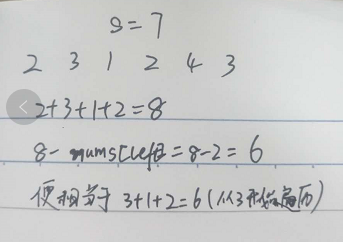 s=7
2 3 1 2 4 3
2+3+1+2=8
8-nums[left]=8-2=6
便相当于 3+1+2=6(从3开始遍历)